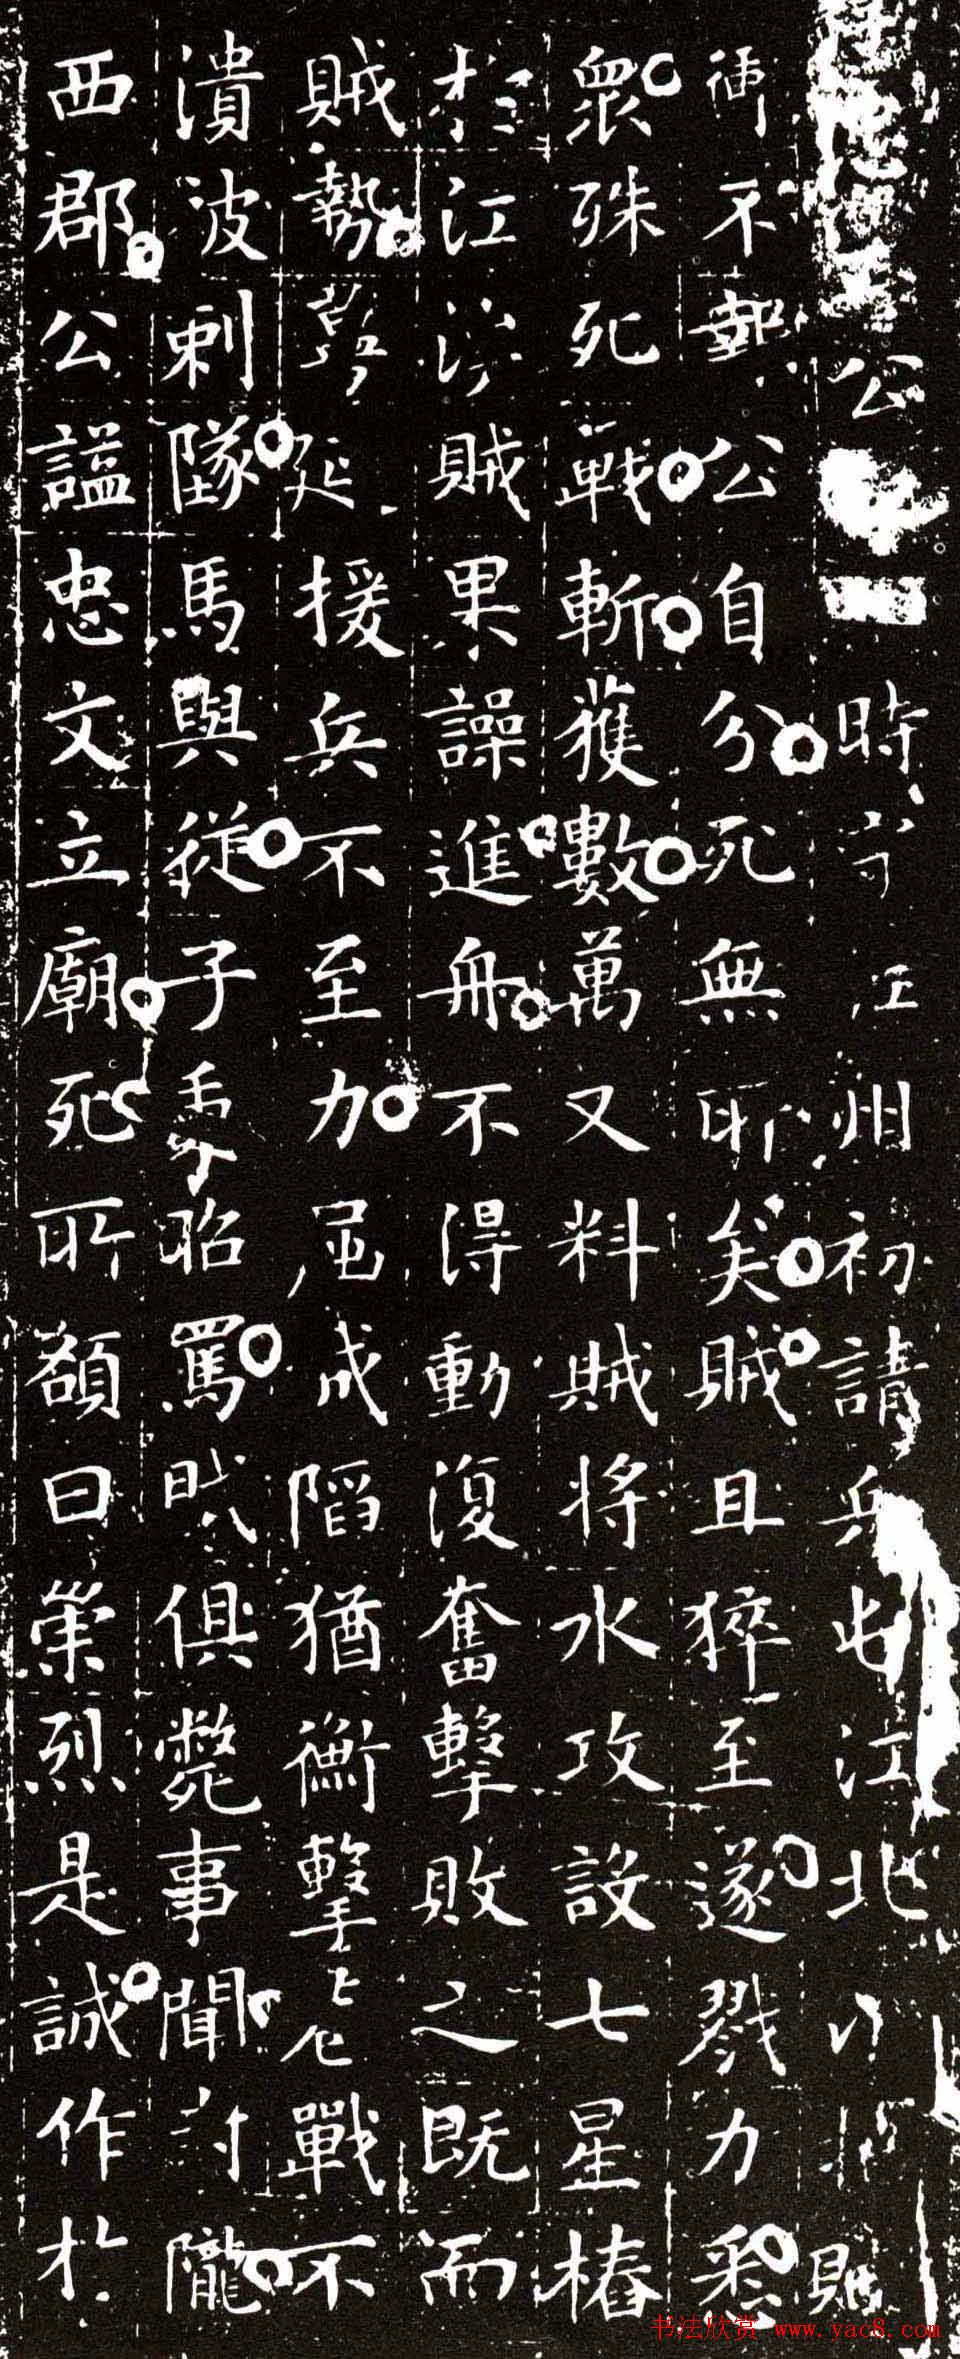 公時守江州初請兵屯江北以拒賊
不報公自分死無所矣賊且猝至遂戮力
眾殊死戰斬獲數萬又料賊將水攻設七星樁
於江賊果譟進舟不得動復奮擊敗之既而
賊勢延援兵不至力屈成陷猶衛擊戰不
潰波剌墜馬與從子秉昭罵俱斃事聞封隴
西郡公諡忠文立廟死所額曰崇烈是誠作於
书法欣赏 www.yac8.com